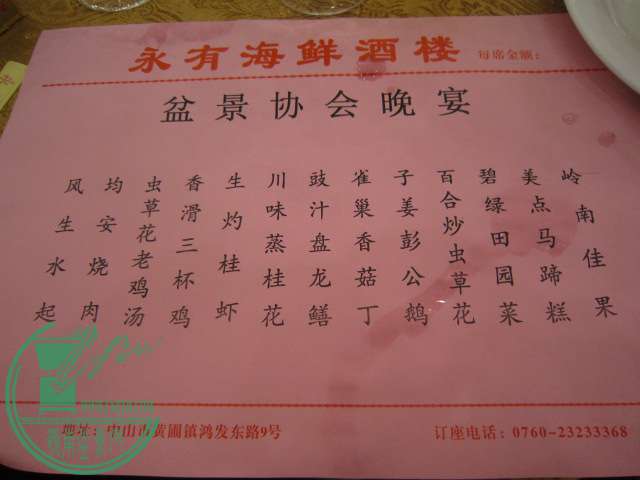 永有海鲜酒楼 每席金额:
盆景协会晚宴
风生水起
均安烧肉
虫草花老鸡汤
香滑三杯鸡
生灼桂虾
川味蒸桂花
豉汁盘龙鳝
雀巢香菇丁
子姜彭公鹅
百合炒虫草花
碧绿田园菜
美点马蹄糕
岭南佳果
地址: 中山市黄圃镇鸿发东路9号
订座电话: 0760-23233368